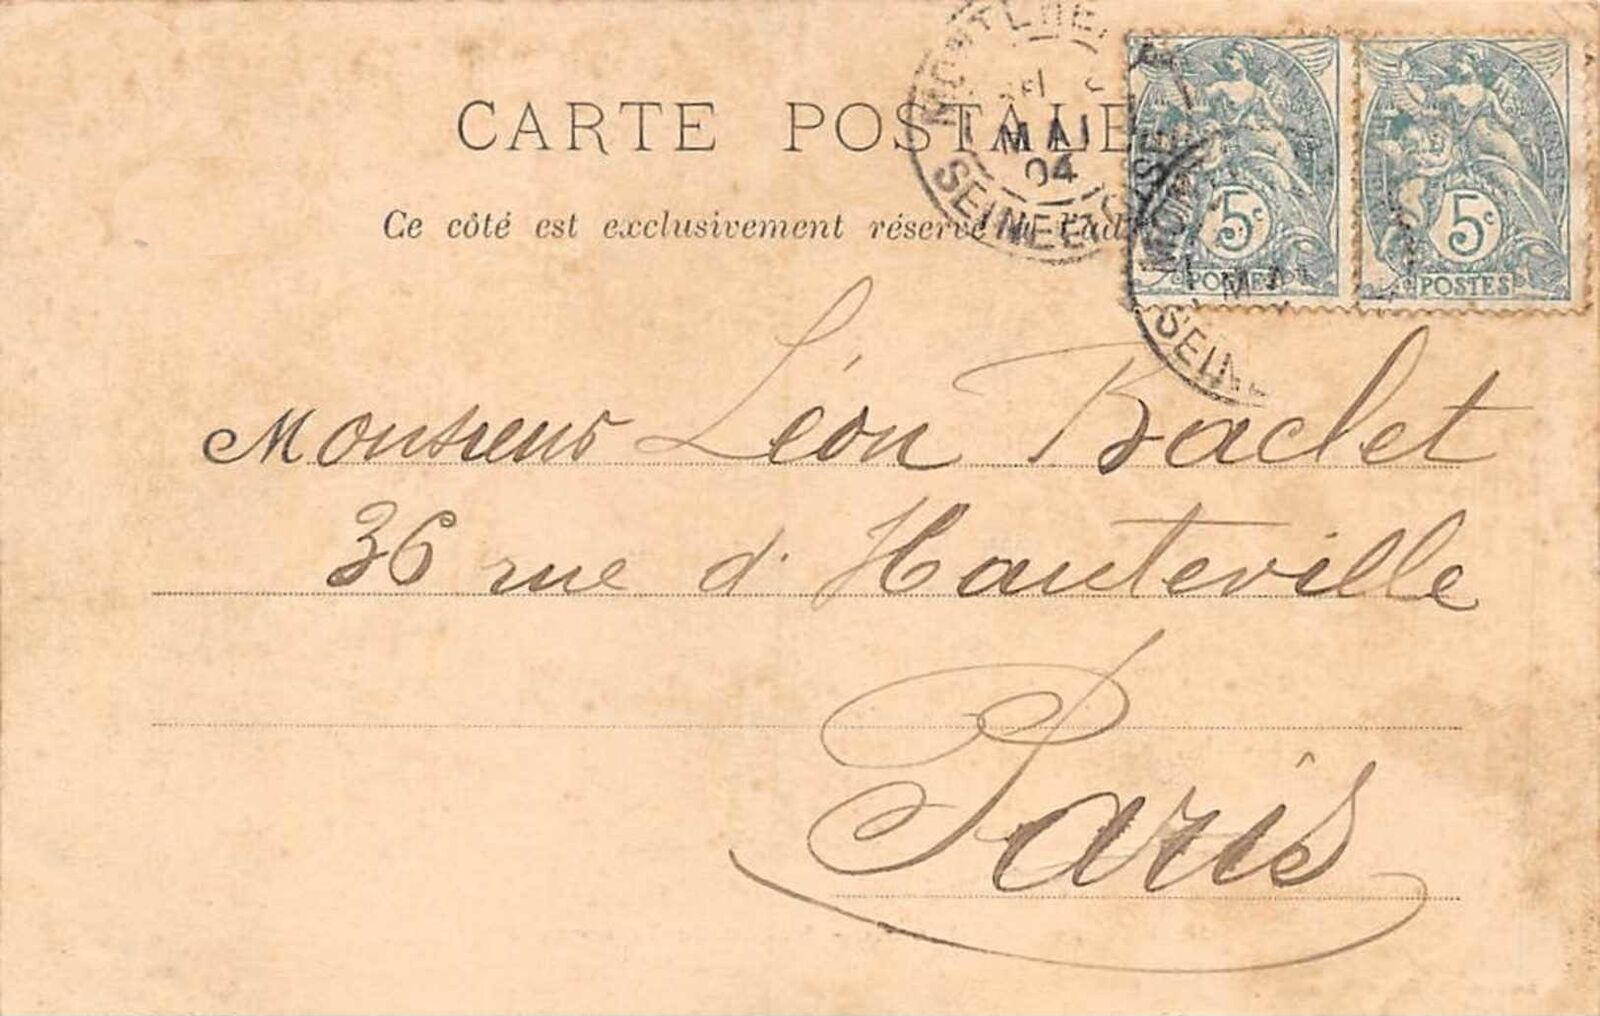 CARTE POSTALE
Ce côté est exclusivement réservé à l'ad
MONTLHE
MAI
04
SEINE ET OISE
MON
MAI
SEINE
5c
POSTES
5c
POSTES
Monsieur Léon Baclet
36 rue d'Hauteville
Paris